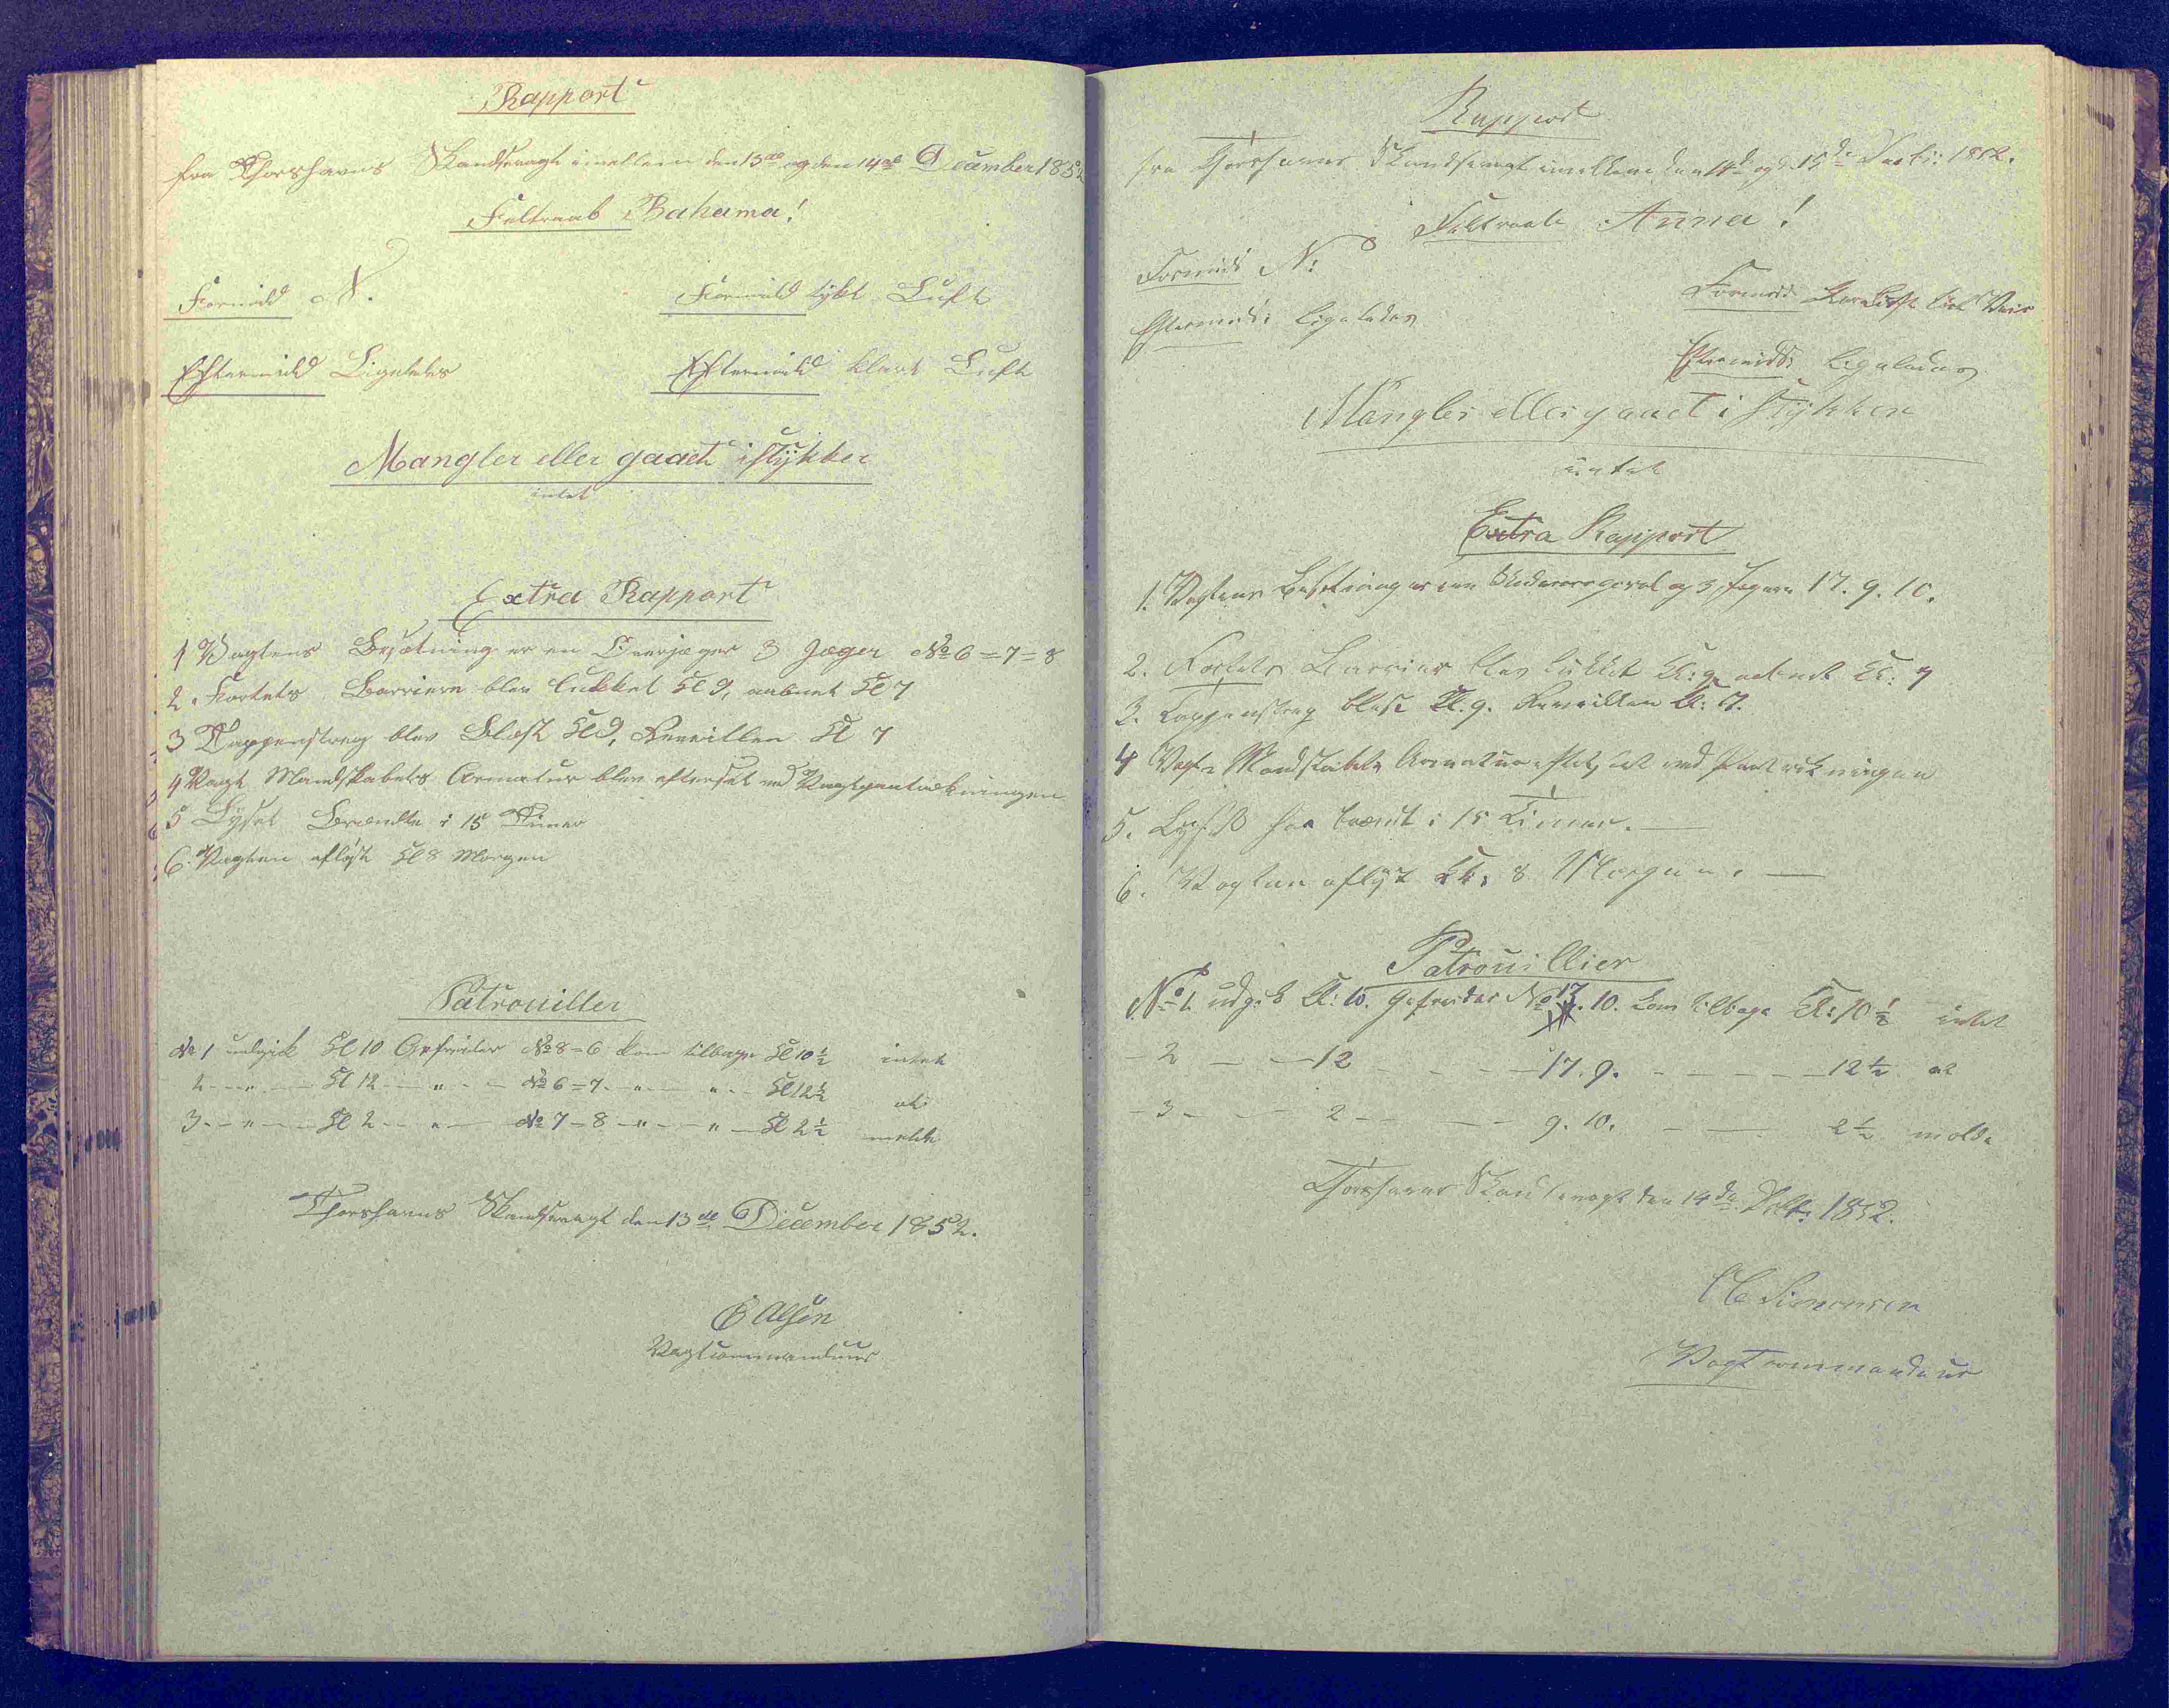 Rapport
fra Thorshavns Skandsevagt imellem den 13de og den 14de December 1852
Feltraab Bahama!
Formidd N.
Formidd tykt Luft
Eftermidd Ligeledes
Eftermidd klart Luft
Mangler eller gaaet istykker
intet
Extra Rapport
1 Vagtens Besætning er en Overjæger 3 Jæger No 6=7=8
2. Fortets Barriere blev lukket Kl 9, aabnet Kl 7
3 Tappenstreg blev Blæst Kl 9, Reveillen Kl 7
4 Vagt Mandskabets Armatur blev efterset ved Vagtparaderingen
5 Lyset Brændte i 15 Timer
6. Vagten afløst Kl 8 Morgen
Patrouiller
No 1 udgik Kl 10 Gefreider No 8-6 kom tilbage Kl 10½ intet
2 - " - Kl 12 - " - No 6=7 - " - " - Kl 12½ at
3 - " - Kl 2 - " - No 7-8 - " - " - Kl 2½ melde
Thorshavns Skandsevagt den 13de December 1852.
Olsen
Vagtcommandeur
Rapport
fra Thorshavns Skandsevagt imellem den 14de og d. 15de Decbr: 1852.
Feltraab Anna!
Formidd N:
Formidd Klar Luft Veir
Eftermidd: Ligeledes
Eftermidd: Ligeledes
Mangler eller gaaet i stykker
intet
Extra Rapport
1. Vagtens Besætning er en og 3 Jægere 17. 9. 10.
2. Fortets Barriere blev lukket Kl: 9 aabnet Kl: 7
3. Tappenstreg blæst Kl. 9. Reveillen Kl: 7.
4 Vagt Mandskabets Armatur efterset ved
5. Lyset har brændt i 15 Timer.
6. Vagten afløst Kl: 8 Morgen.
Patrouillier
No 1. udgik Kl: 10. Gefreider No 17. 10. kom tilbage Kl: 10½ intet
- 2 - - 12 - - - 17. 9. - - - - 12½ at
- 3 - - - 2 - - - 9. 10. - - 2½ melde
Thorshavns Skandsevagt den 14de Decbr: 1852.
Simonsen
Vagtcommandeur